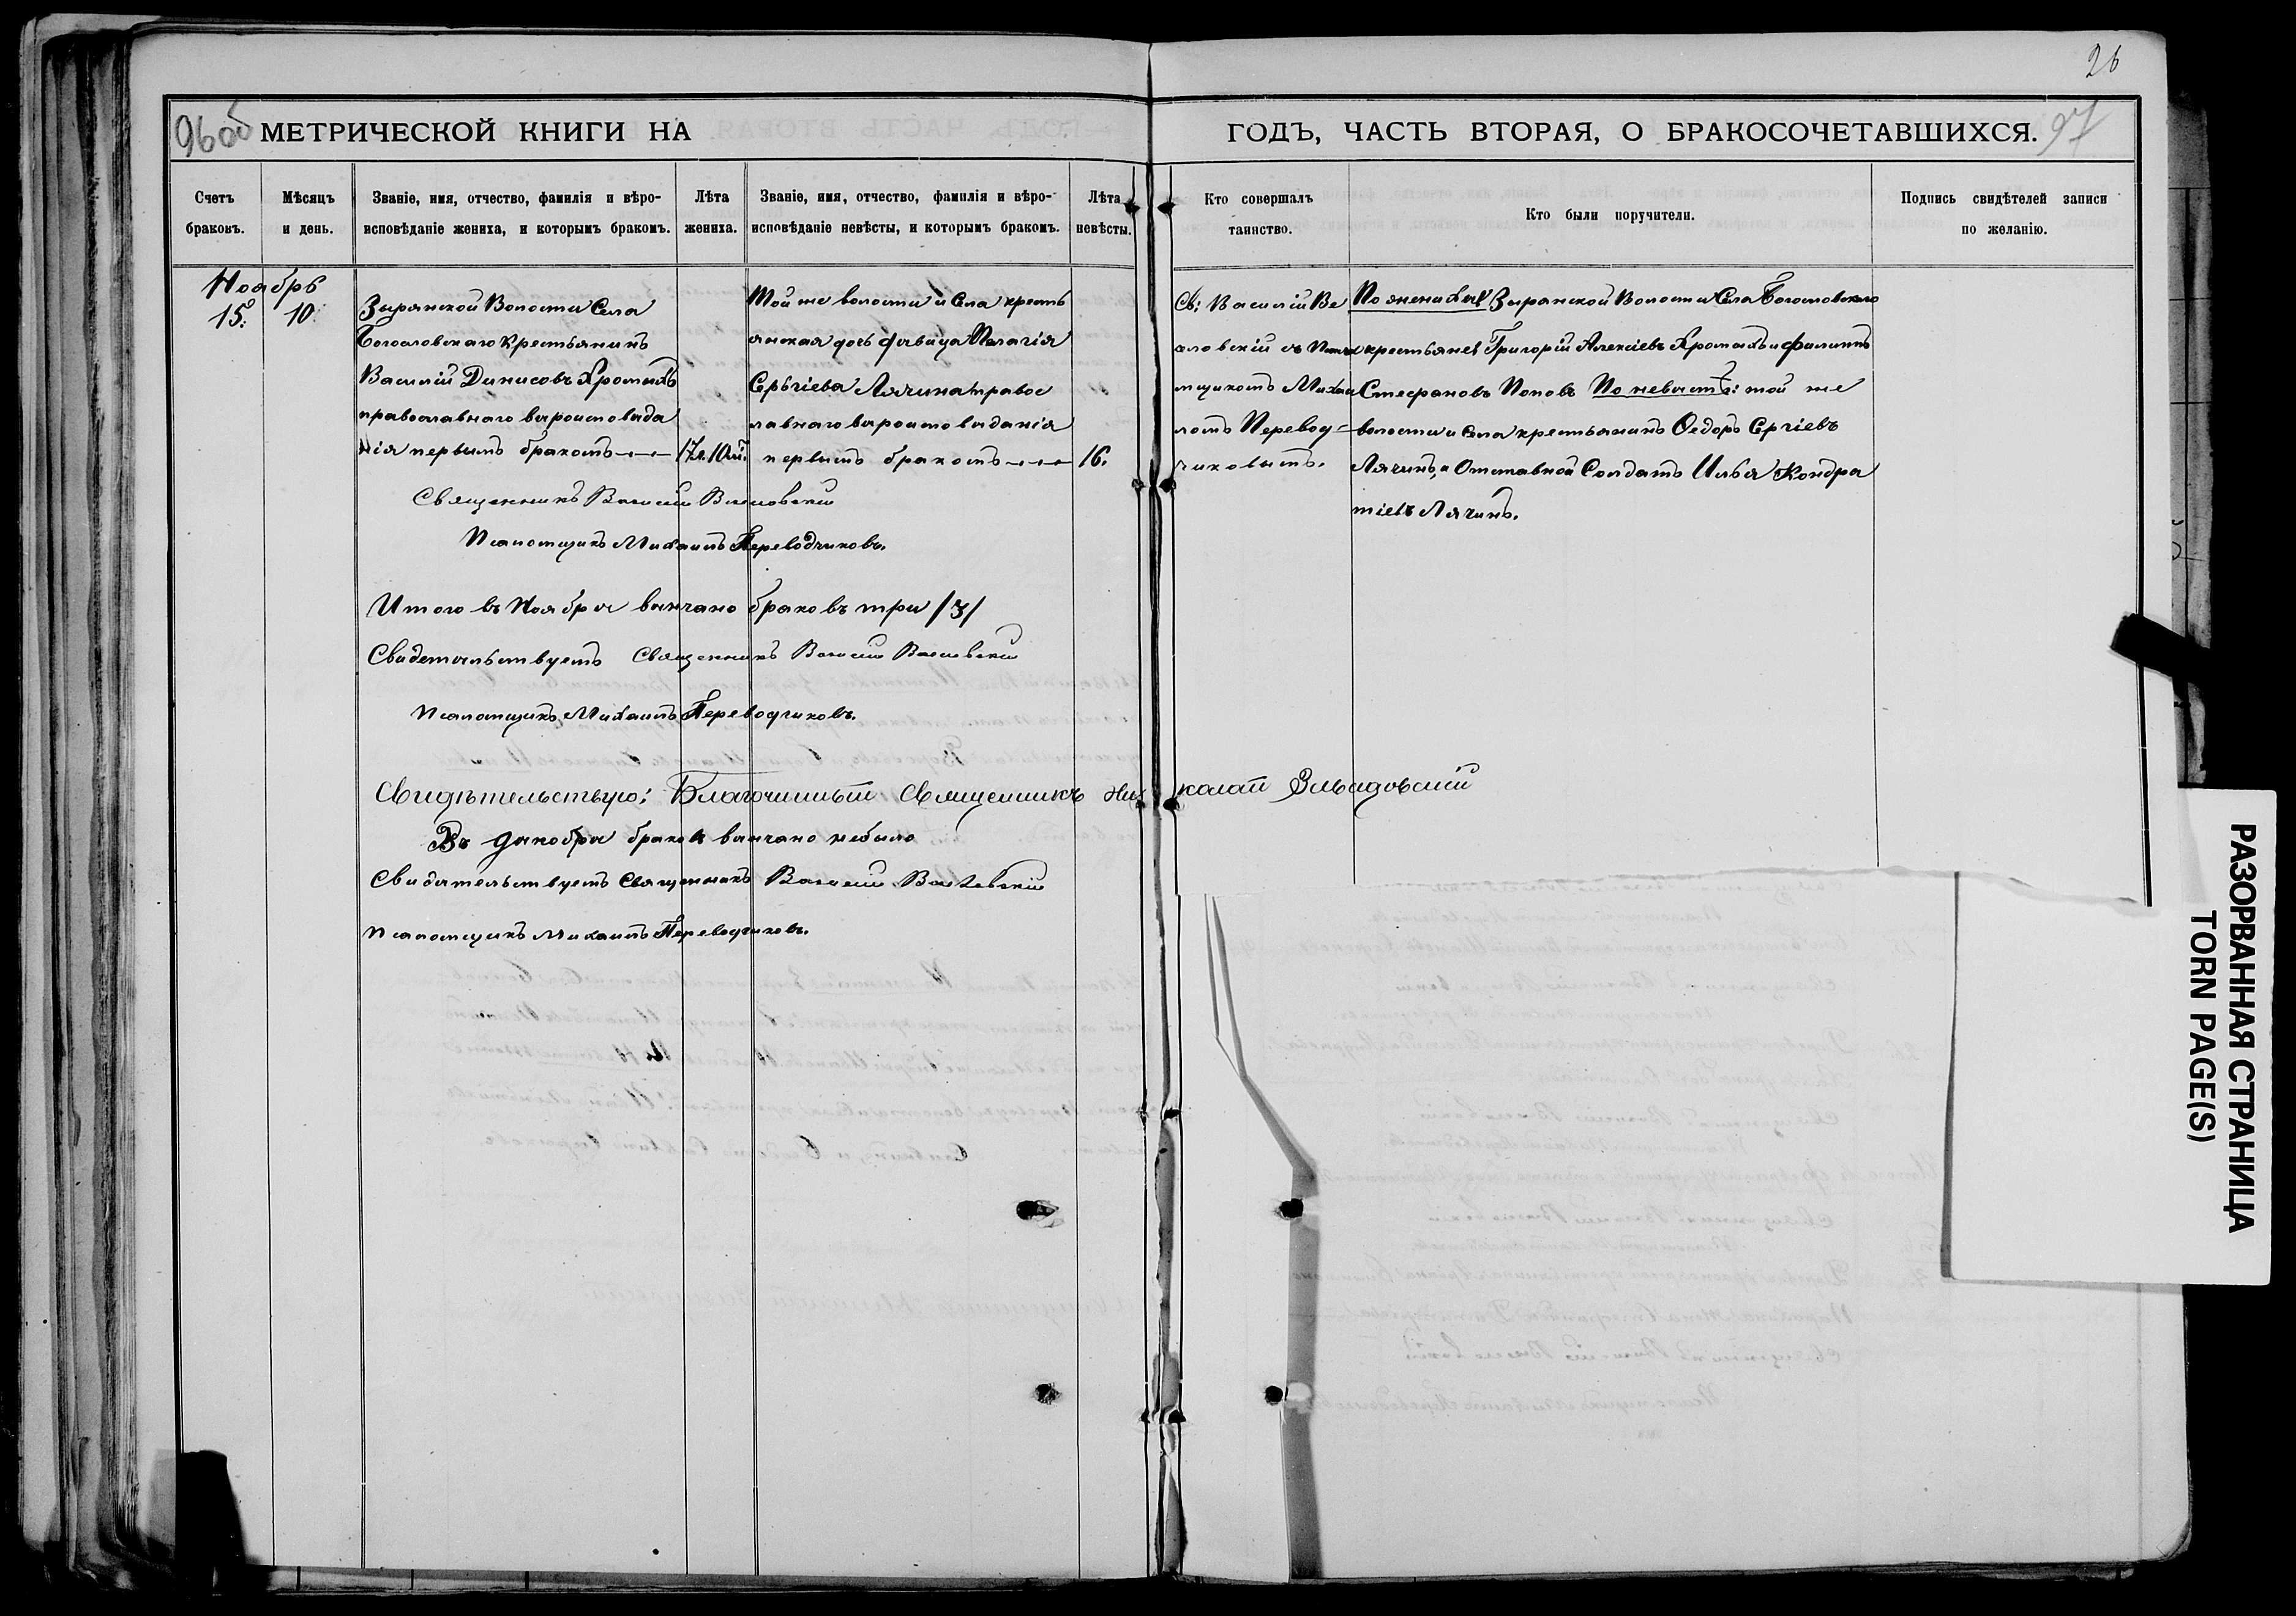 26
96об МЕТРИЧЕСКОЙ КНИГИ НА
ГОДЪ, ЧАСТЬ ВТОРАЯ, О БРАКОСОЧЕТАВШИХСЯ. 97
Счетъ браковъ.
Мѣсяцъ и день.
Званіе, имя, отчество, фамилія и вѣро-
исповѣданіе жениха, и которымъ бракомъ.
Лѣта жениха.
Званіе, имя, отчество, фамилія и вѣро-
исповѣданіе невѣсты, и которымъ бракомъ.
Лѣта невѣсты.
Кто совершалъ таинство.
Кто были поручители.
Подпись свидѣтелей записи
по желанію.
Ноябрь
15. 10.
Зырянской Волости Села
Богословскаго Крестьянинъ
Василій Динисовъ Хромыхъ
православнаго вѣроисповѣда
нія первымъ бракомъ
17л. 10м.
Той же волости и Села кресть
янская дочь дѣвица Пелагія
Сергіева Лячина правос
лавнаго вѣроисповѣданія
первымъ бракомъ
16.
Св: Василій Ве
ловскій съ
мщикомъ Михаи
ломъ Перевод-
чиковымъ.
По женихѣ Зырянской Волости Села Богословскаго
крестьяне Григорій Алексіевъ Хромыхъ и Филиппъ
Стефановъ Поповъ По невѣстѣ: той же
волости и Села крестьянинъ Ѳедоръ Сергіевъ
Лячинъ, и Отставной Солдатъ Илья Кондра
тіевъ Лячинъ.
Священникъ Василій
Псаломщикъ Михаилъ Переводчиковъ.
Итого въ Ноябрѣ вѣнчано браковъ три /3/
Свидѣтельствуетъ Священникъ Василій
Псаломщикъ Михаилъ Переводчиковъ.
Свидѣтельствую: Благочинный Священникъ Николай
Въ декабрѣ браковъ вѣнчано небыло
Свидѣтельствуетъ Священникъ Василій
Псаломщикъ Михаилъ Переводчиковъ.
РАЗОРВАННАЯ СТРАНИЦА
TORN PAGE(S)